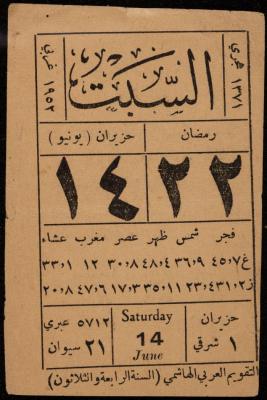 ١٣٧١ هجري
السَّبت
١٩٥٢ غربي
رمضان
حزيران ( يونيو )
٢٢
١٤
فجر شمس ظهر عصر مغرب عشاء
غ ٧،٤٥ ٩،٣٦ ٤،٤٨ ٨،٣٠ ١٢ ١،٣٣
ز ٢،٢٣ ٤،٣١ ١١،٣٥ ٣،١٧ ٦،٤٧ ٨،٢٠
حزيران
١ شرقي
Saturday
14
June
٥٧١٢ عبري
٢١ سيوان
التقويم العربي الهاشمي (السنة الرابعة والثلاثون)